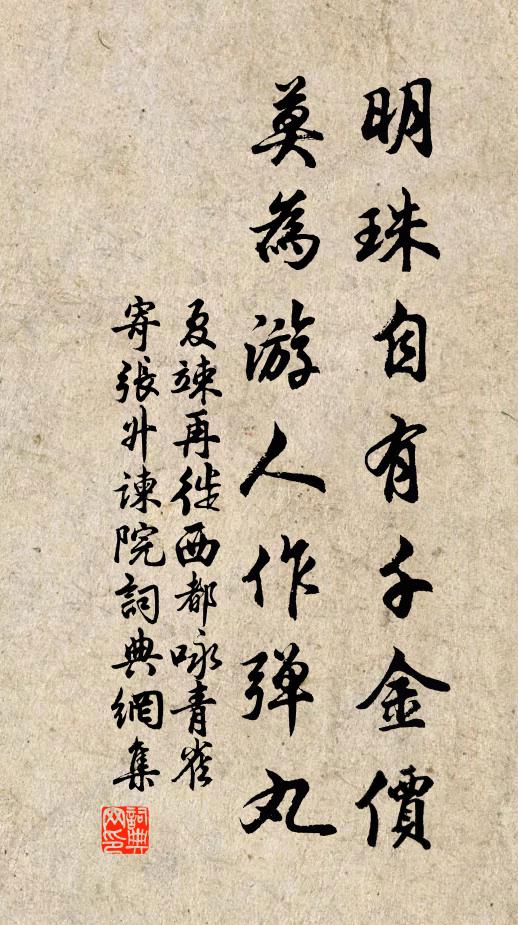 明珠自有千金價
莫為游人作弹丸
夏竦再徙西都咏青雀
寄張升諫院詞典網集
詞典网印